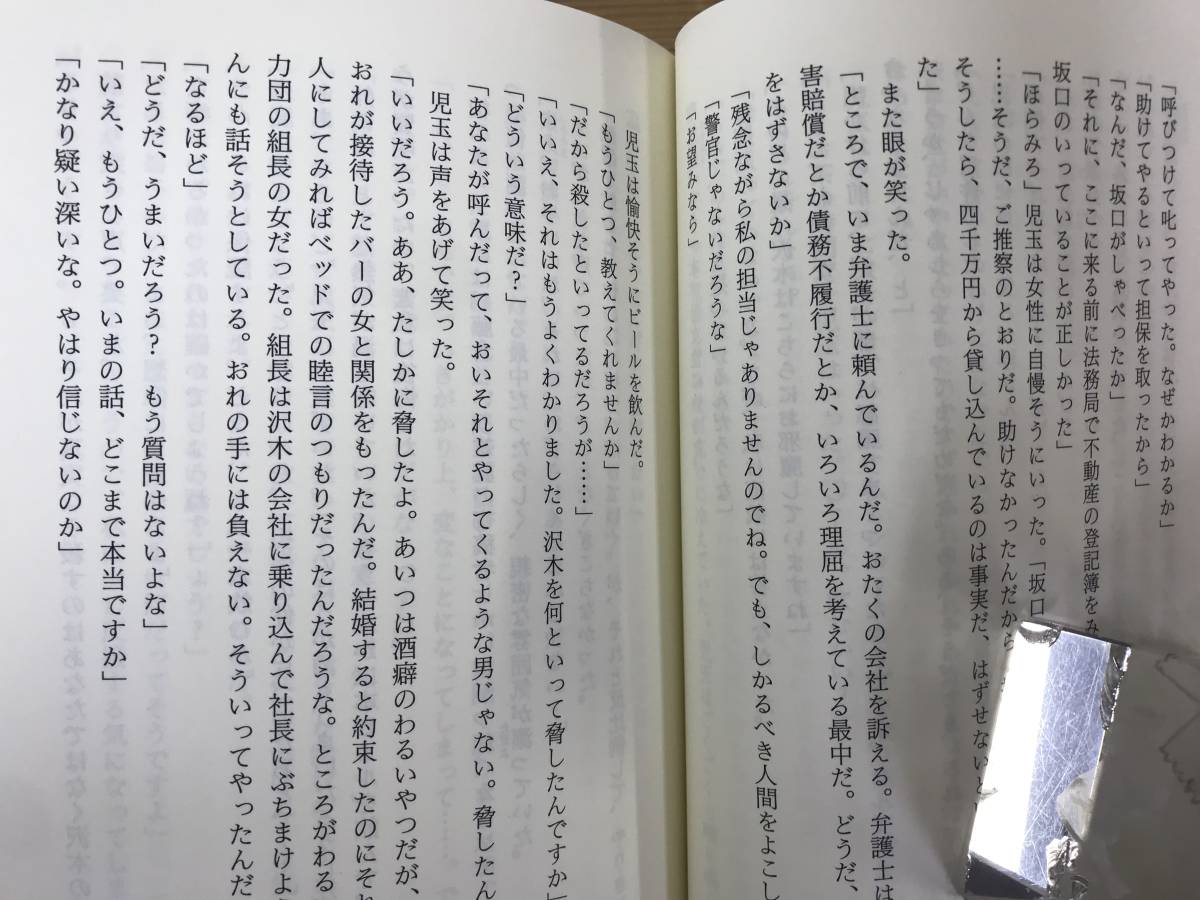 「呼びつけて叱ってやった。なぜかわかるか」
「助けてやるといって担保を取ったから」
「なんだ、坂口がしゃべったか」
「それに、ここに来る前に法務局で不動産の登記簿をみ
坂口のいっていることが正しかった」
「ほらみろ」児玉は女性に自慢そうにいった。「坂口
……そうだ、ご推察のとおりだ。助けなかったんだから
そうしたら、四千万円から貸し込んでいるのは事実だ、はずせないとい
た」
また眼が笑った。
「ところで、いま弁護士に頼んでいるんだ。おたくの会社を訴える。弁護士は
害賠償だとか債務不履行だとか、いろいろ理屈を考えている最中だ。どうだ、
をはずさないか」
「残念ながら私の担当じゃありませんのでね。でも、しかるべき人間をよこし
「警官じゃないだろうな」
「お望みなら」
児玉は愉快そうにビールを飲んだ。
「もうひとつ、教えてくれませんか」
「だから殺したといってるだろうが……」
「いいえ、それはもうよくわかりました。沢木を何といって脅したんですか」
「どういう意味だ？」
「あなたが呼んだって、おいそれとやってくるような男じゃない。脅したん
児玉は声をあげて笑った。
「いいだろう。ああ、たしかに脅したよ。あいつは酒癖のわるいやつだが、
おれが接待したバーの女と関係をもったんだ。結婚すると約束したのにそれ
人にしてみればベッドでの睦言のつもりだったんだろうな。ところがわる
力団の組長の女だった。組長は沢木の会社に乗り込んで社長にぶちまけよ
んにも話そうとしている。おれの手には負えない。そういってやったんだ
「なるほど」
「どうだ、うまいだろう？　もう質問はないよな」
「いえ、もうひとつ。いまの話、どこまで本当ですか」
「かなり疑い深いな。やはり信じないのか」